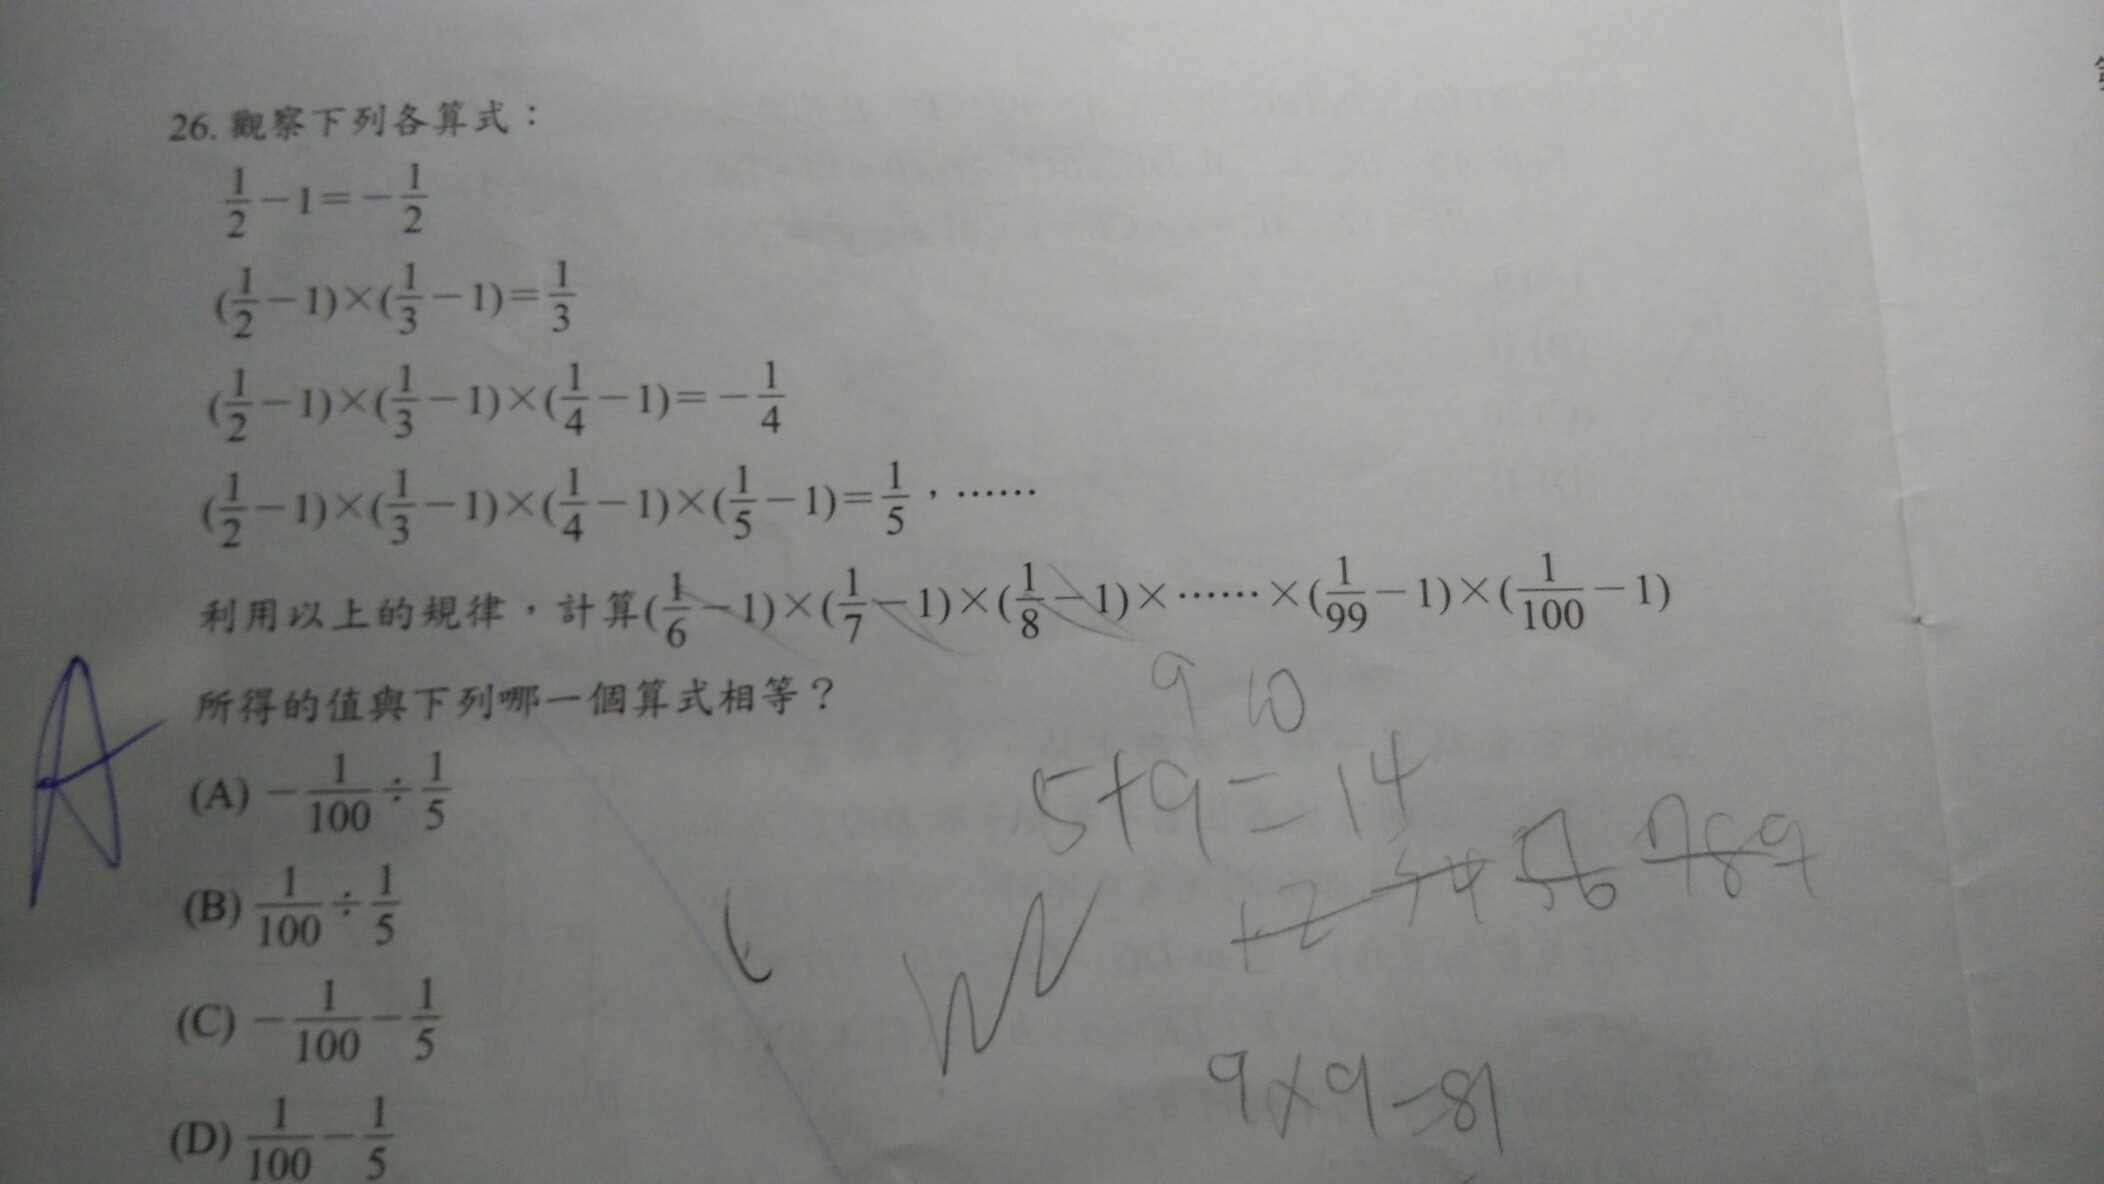 26. 觀察下列各算式：
1/2 − 1 = − 1/2
(1/2 − 1)×(1/3 − 1) = 1/3
(1/2 − 1)×(1/3 − 1)×(1/4 − 1) = − 1/4
(1/2 − 1)×(1/3 − 1)×(1/4 − 1)×(1/5 − 1) = 1/5，……
利用以上的規律，計算(1/6 − 1)×(1/7 − 1)×(1/8 − 1)×……×(1/99 − 1)×(1/100 − 1)
所得的值與下列哪一個算式相等？
A
(A) − 1/100 ÷ 1/5
(B) 1/100 ÷ 1/5
(C) − 1/100 − 1/5
(D) 1/100 − 1/5
9 10
5+9=14
9×9=81